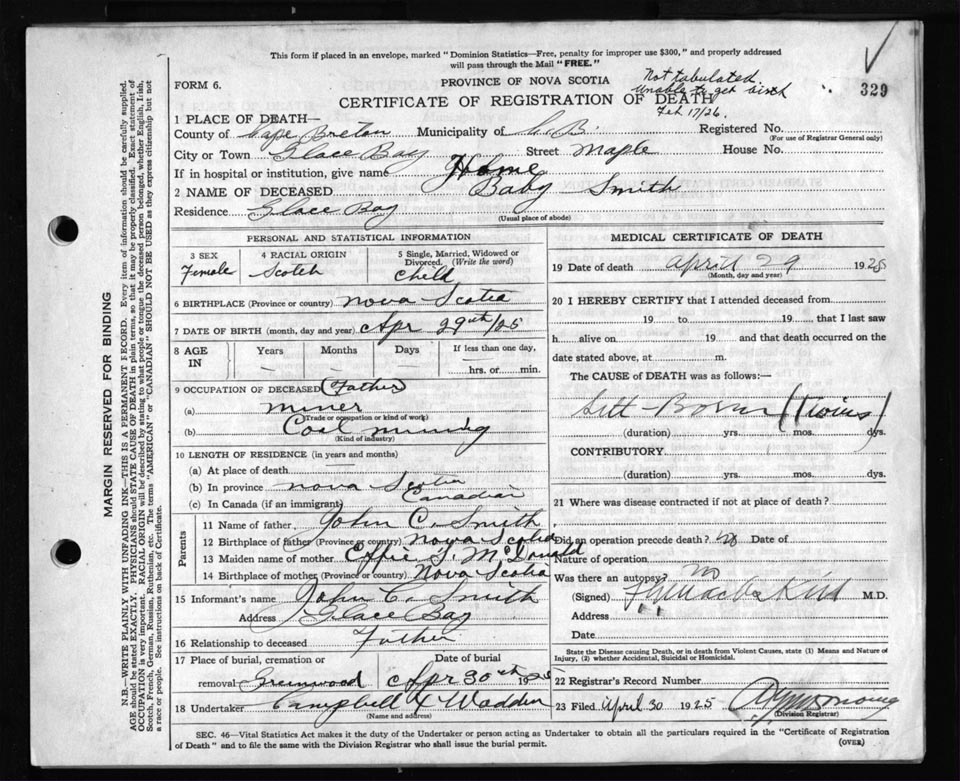 This form if placed in an envelope, marked "Dominion Statistics—Free, penalty for improper use $300," and properly addressed
will pass through the Mail "FREE."
FORM 6.
PROVINCE OF NOVA SCOTIA
CERTIFICATE OF REGISTRATION OF DEATH
Not tabulated
Unable to get birth
Feb 17/26.
329
1 PLACE OF DEATH—
County of Cape Breton Municipality of C.B. Registered No.
(For use of Registrar General only)
City or Town Glace Bay Street Maple House No.
If in hospital or institution, give name Home
2 NAME OF DECEASED Baby Smith
Residence Glace Bay
(Usual place of abode)
PERSONAL AND STATISTICAL INFORMATION
3 SEX
Female
4 RACIAL ORIGIN
Scotch
5 Single, Married, Widowed or
Divorced. (Write the word)
Child
6 BIRTHPLACE (Province or country) Nova Scotia
7 DATE OF BIRTH (month, day and year) Apr 29th/25
8 AGE
IN
Years
—
Months
—
Days
—
If less than one day,
hrs. or min.
9 OCCUPATION OF DECEASED (Father)
(a) miner
(Trade or occupation or kind of work)
(b) Coal mining
(Kind of industry)
10 LENGTH OF RESIDENCE (in years and months)
(a) At place of death
(b) In province Nova Scotia
(c) In Canada (if an immigrant) Canadian
Parents
11 Name of father John C. Smith
12 Birthplace of father (Province or country) Nova Scotia
13 Maiden name of mother Effie J. McDonald
14 Birthplace of mother (Province or country) Nova Scotia
15 Informant's name John C. Smith
Address Glace Bay
16 Relationship to deceased Father
17 Place of burial, cremation or
removal Greenwood
Date of burial
Apr 30th 1925
18 Undertaker Campbell & Wadden
(Name and address)
MEDICAL CERTIFICATE OF DEATH
19 Date of death April 29 1925
(Month, day and year)
20 I HEREBY CERTIFY that I attended deceased from
19 to 19 that I last saw
h alive on 19 and that death occurred on the
date stated above, at m.
The CAUSE of DEATH was as follows:—
Still-Born (Twins)
(duration) yrs. mos. dys.
CONTRIBUTORY.
(duration) yrs. mos. dys.
21 Where was disease contracted if not at place of death?
Did an operation precede death? no Date of
Nature of operation
Was there an autopsy? no
(Signed) M.D.
Address " "
Date
State the Disease causing Death, or in death from Violent Causes, state (1) Means and Nature of
Injury, (2) whether Accidental, Suicidal or Homicidal.
22 Registrar's Record Number
23 Filed April 30 1925
(Division Registrar)
SEC. 46—Vital Statistics Act makes it the duty of the Undertaker or person acting as Undertaker to obtain all the particulars required in the "Certificate of Registration
of Death" and to file the same with the Division Registrar who shall issue the burial permit.
(OVER)
MARGIN RESERVED FOR BINDING
N.B.—WRITE PLAINLY WITH UNFADING INK—THIS IS A PERMANENT RECORD. Every item of information should be carefully supplied.
AGE should be stated EXACTLY. PHYSICIANS should STATE CAUSE OF DEATH in plain terms, so that it may be properly classified. Exact statement of
OCCUPATION is very important. RACIAL ORIGIN will be described by stating to what people or tongue the deceased person belonged, whether English, Irish,
Scotch, French, German, Russian, Ruthenian, etc. The terms "AMERICAN" or "CANADIAN" SHOULD NOT BE USED as they express citizenship but not
a race or people. See instructions on back of Certificate.